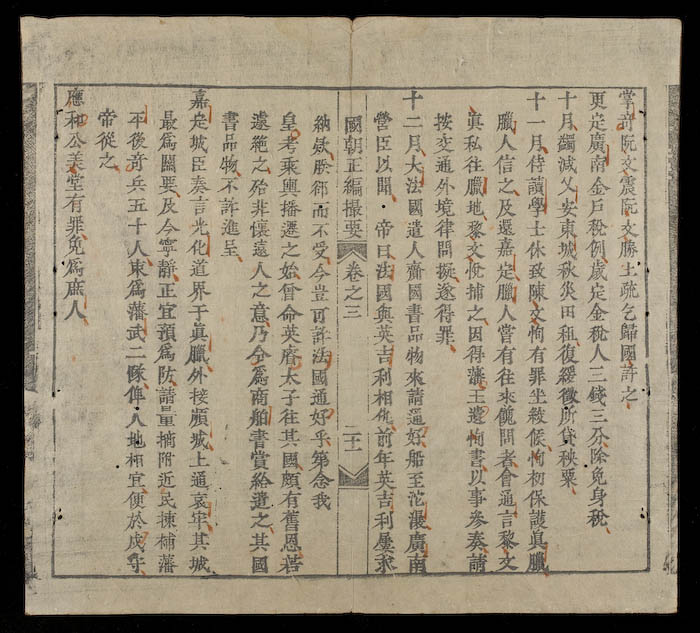 掌奇阮文震阮文勝上疏乞歸國許之
更定廣南金戶稅例歲定金稅人三錢三分除免身稅
十月蠲減乂安東城秋災田租復緩徵所貸秧粟
十一月侍讀學士休致陳文恂有罪坐絞候恂初保護真臘
臘人信之及還嘉定臘人嘗有往來餽問者會通言黎文
真私往臘地黎文悅捕之因得藩王遺恂書以事參奏請
按交通外境律問擬遂得罪
十二月大法國遣人齎國書品物來請通好船至沱㶞廣南
營臣以聞帝曰法國與英吉利相仇前年英吉利屢求
納款朕卻而不受今豈可許法國通好乎第念我
皇考乘輿播遷之始曾命英睿太子往其國頗有舊恩若
遽絕之殆非懷遠人之意乃令為商舶書賞給遣之其國
書品物不許進呈
嘉定城臣奏言光化道界于真臘外接順城上通哀牢其城
最為關要及今寧靜正宜預為防請量摘附近民揀補藩
平後奇兵五十人東為藩武二隊俾人地相宜便於戍守
帝從之
應和公美堂有罪免為庶人
國朝正編撮要
卷之三
二十二